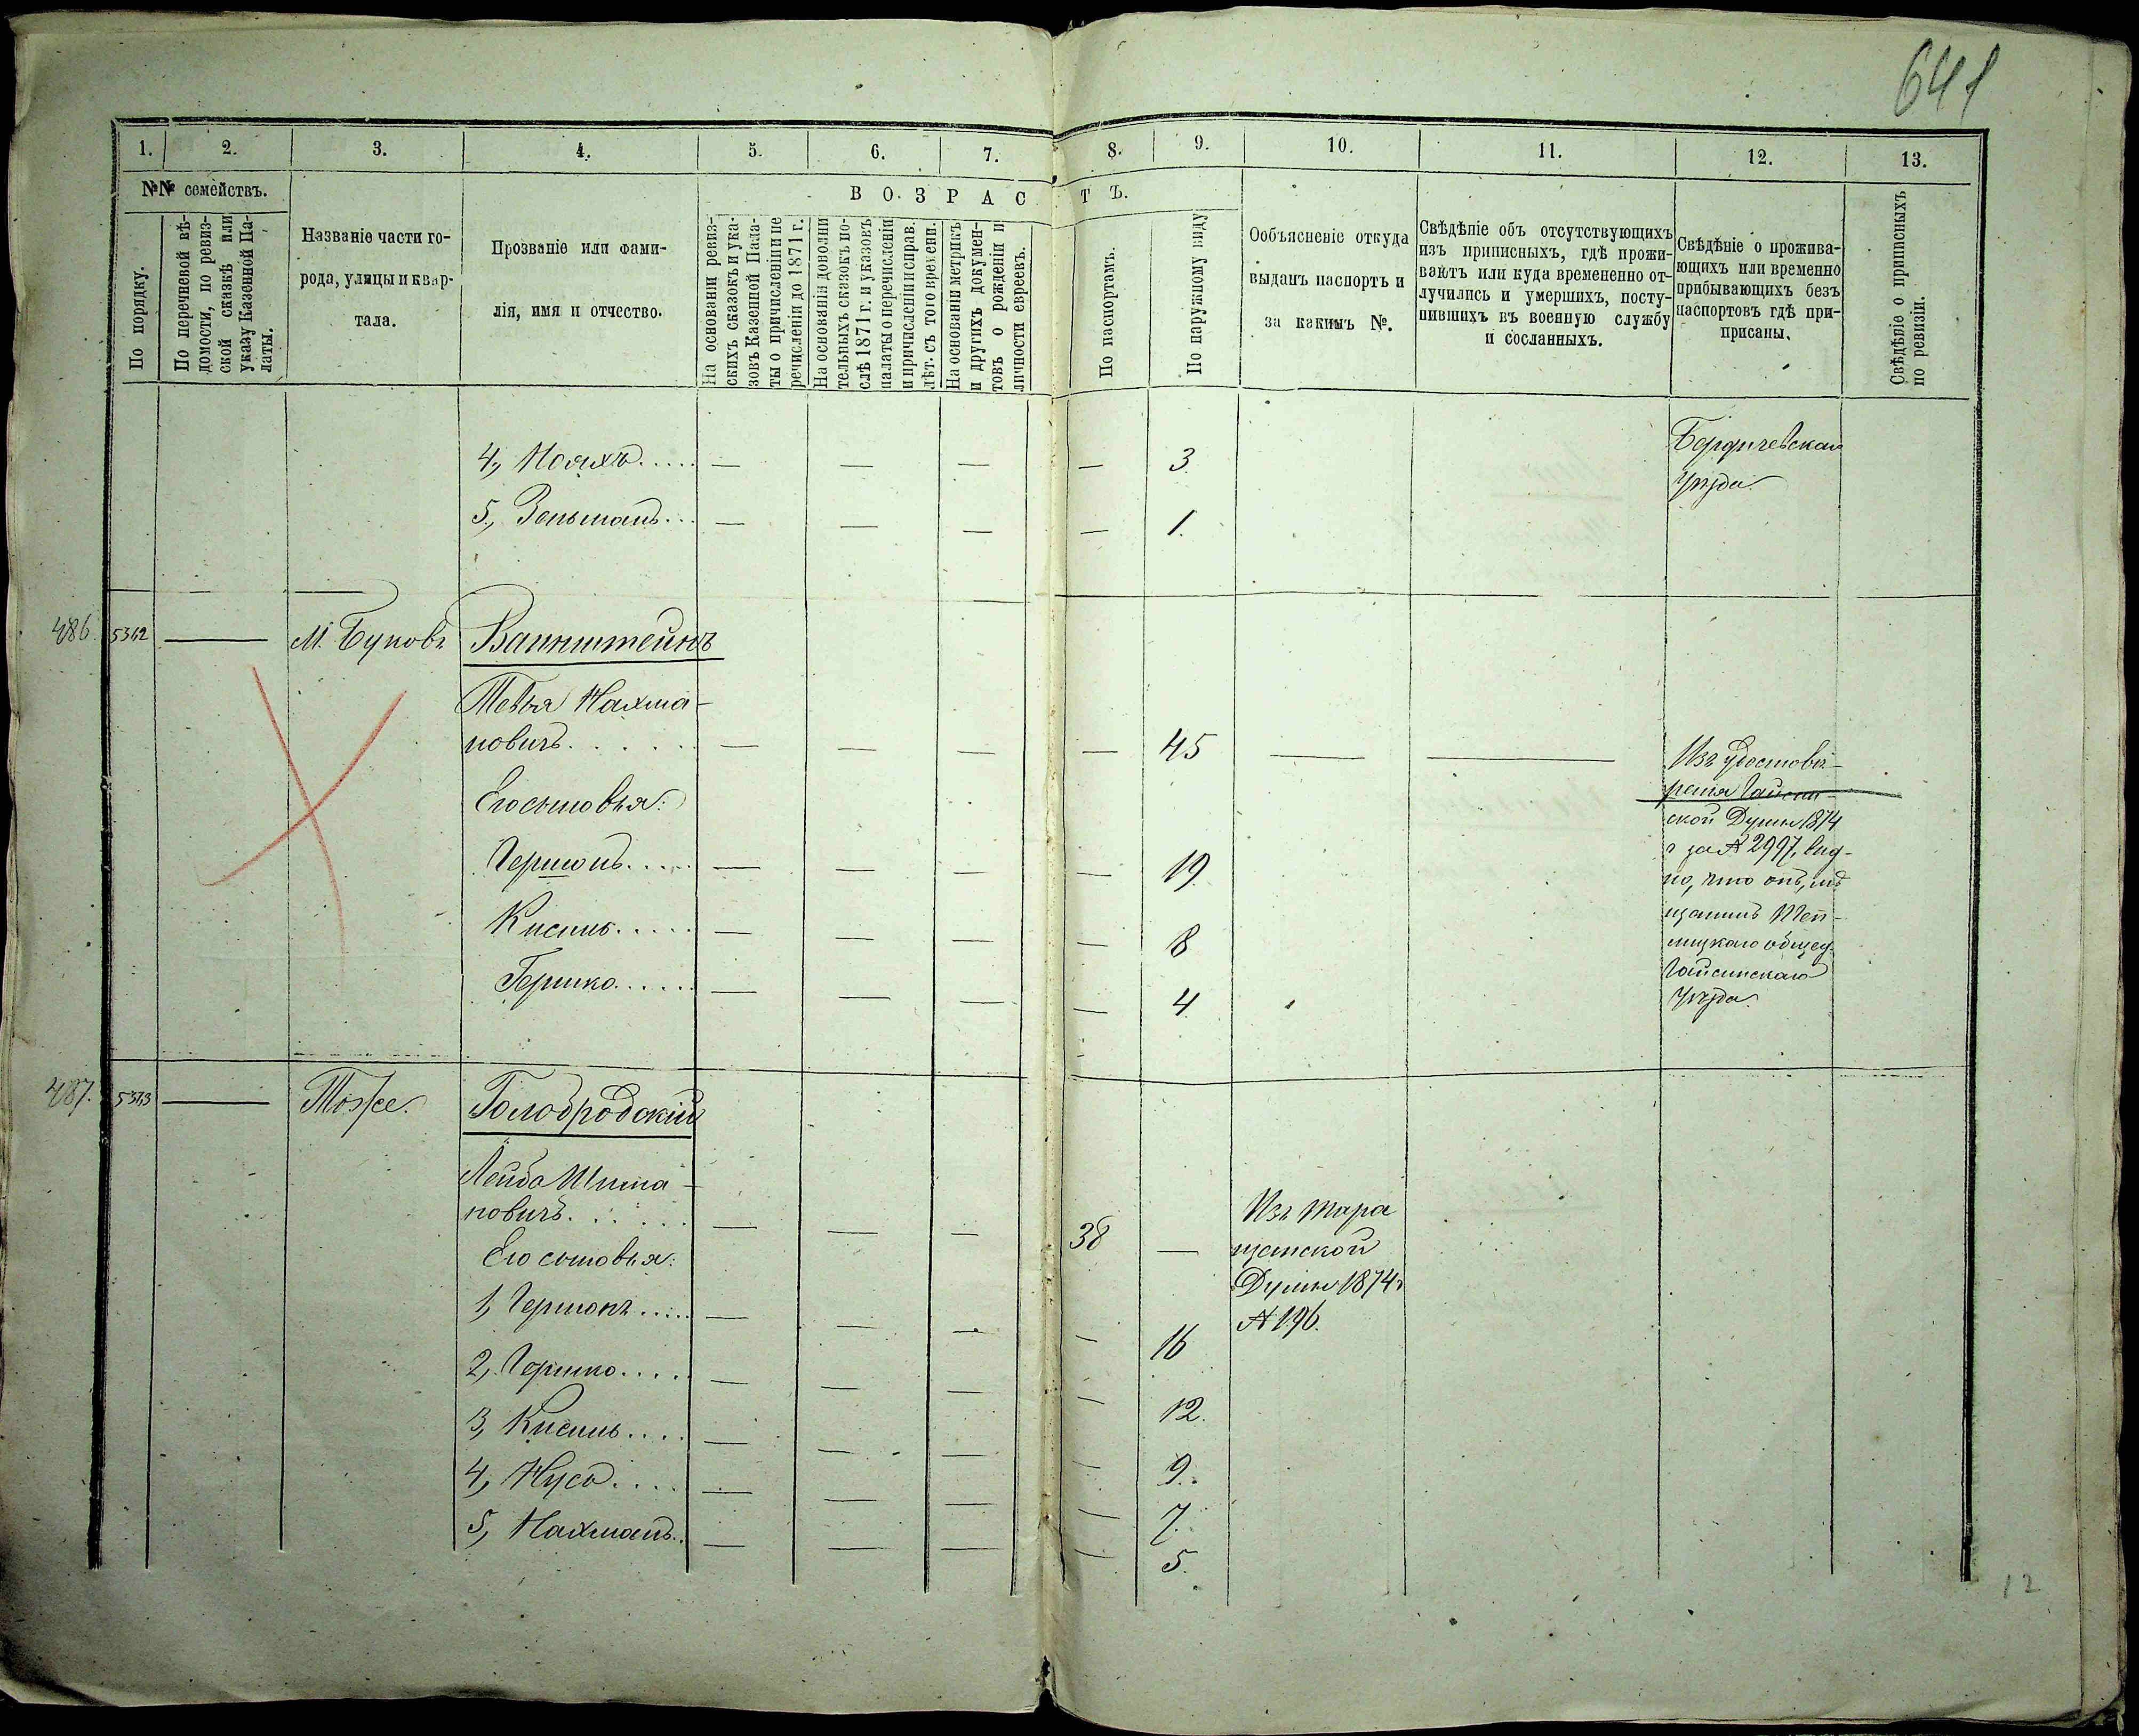 641
1. 2. 3. 4. 5. 6. 7. 8. 9. 10. 11. 12. 13.
№№ семействъ.
По порядку.
По перечневой вѣ-
домости, по ревиз-
ской сказкѣ или
указу Казенной Па-
латы.
Названіе части го-
рода, улицы и квар-
тала.
Прозваніе или фами-
лія, имя и отчество.
ВОЗРАСТЪ.
На основаніи ревиз-
скихъ сказокъ и ука-
зовъ Казенной Пала-
ты о причисленіи и пе
речисленіи до 1871 г.
На основаніи дополни
тельныхъ сказокъ по-
слѣ 1871 г. и указовъ
палаты о перечисленіи
и причисленіи и справ.
лѣт. съ того времени.
На основаніи метрикъ
и другихъ докумен-
товъ о рожденіи и
личности евреевъ.
По паспортамъ.
По наружному виду
Ообъясненіе откуда
выданъ паспортъ и
за какимъ №.
Свѣдѣніе объ отсутствующихъ
изъ приписныхъ, гдѣ прожи-
ваютъ или куда временено от-
лучились и умершихъ, посту-
пившихъ въ военную службу
и сосланныхъ.
Свѣдѣніе о прожива-
ющихъ или временно
прибывающихъ безъ
паспортовъ гдѣ при-
писаны.
Свѣдѣніе о приписныхъ
по ревизіи.
4, Нояхъ..... — — — — 3. Бердичевскаго
уѣзда
5, Зельманъ... — — — — 1.
486. 5362 — М. Буковъ Ванштейнъ
Тевья Нахма-
новичъ...... — — — — 45 — — Изъ удостовѣ-
ренія Гайсин-
ской Думы 1874
г за № 2997, вид-
но, что онъ, мѣ
щанинъ Теп-
лицкаго общес.
Гайсинскаго
уѣзда.
Его сыновья:
Гершонъ..... — — — — 19.
Кисиль..... — — — — 8
Гершко..... — — — — 4
487. 5363 — Тоже. Голобродскій
Лейба Шима-
новичъ...... — — — 38 — Изъ Тара
щанской
Думы 1874 г
№ 196.
Его сыновья:
1, Гершонъ..... — — — — 16
2, Гершко..... — — — — 12.
3, Кисиль.... — — — — 9.
4, Нусь.... — — — — 7.
5, Нахманъ.. — — — — 5.
12